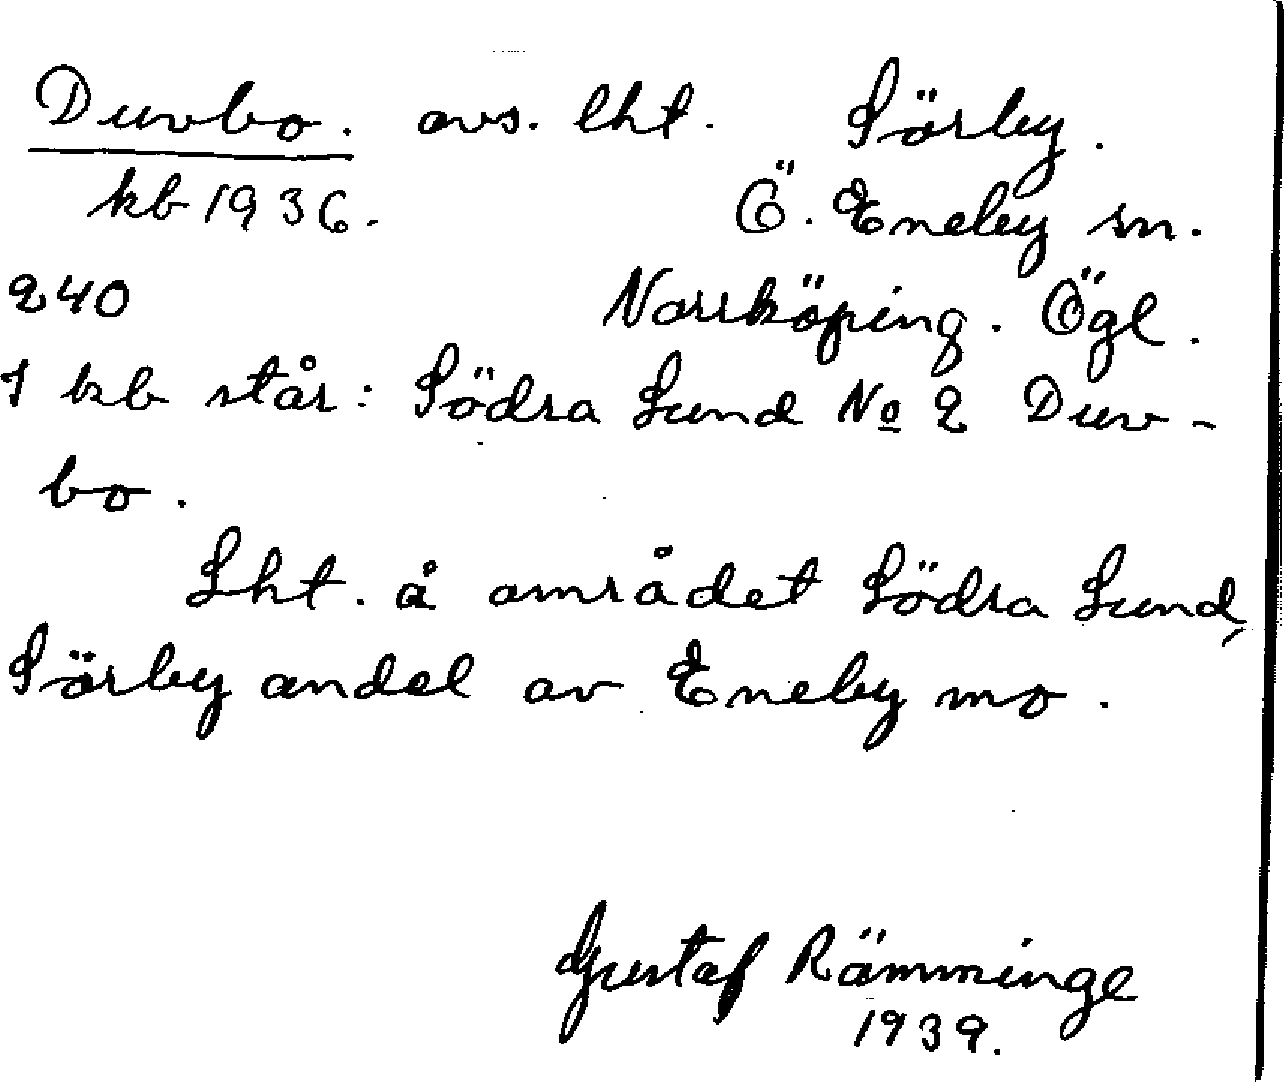 Duvbo. avs. lht. Sörby.
kb 1936. Ö. Eneby sn.
240 Norrköping. Ögl.
I kb står: Södra Lund No 2 Duv-
bo.
Lht. å området Södra Lund,
Sörby andel av Eneby mo.
Gustaf Rämminge
1939.